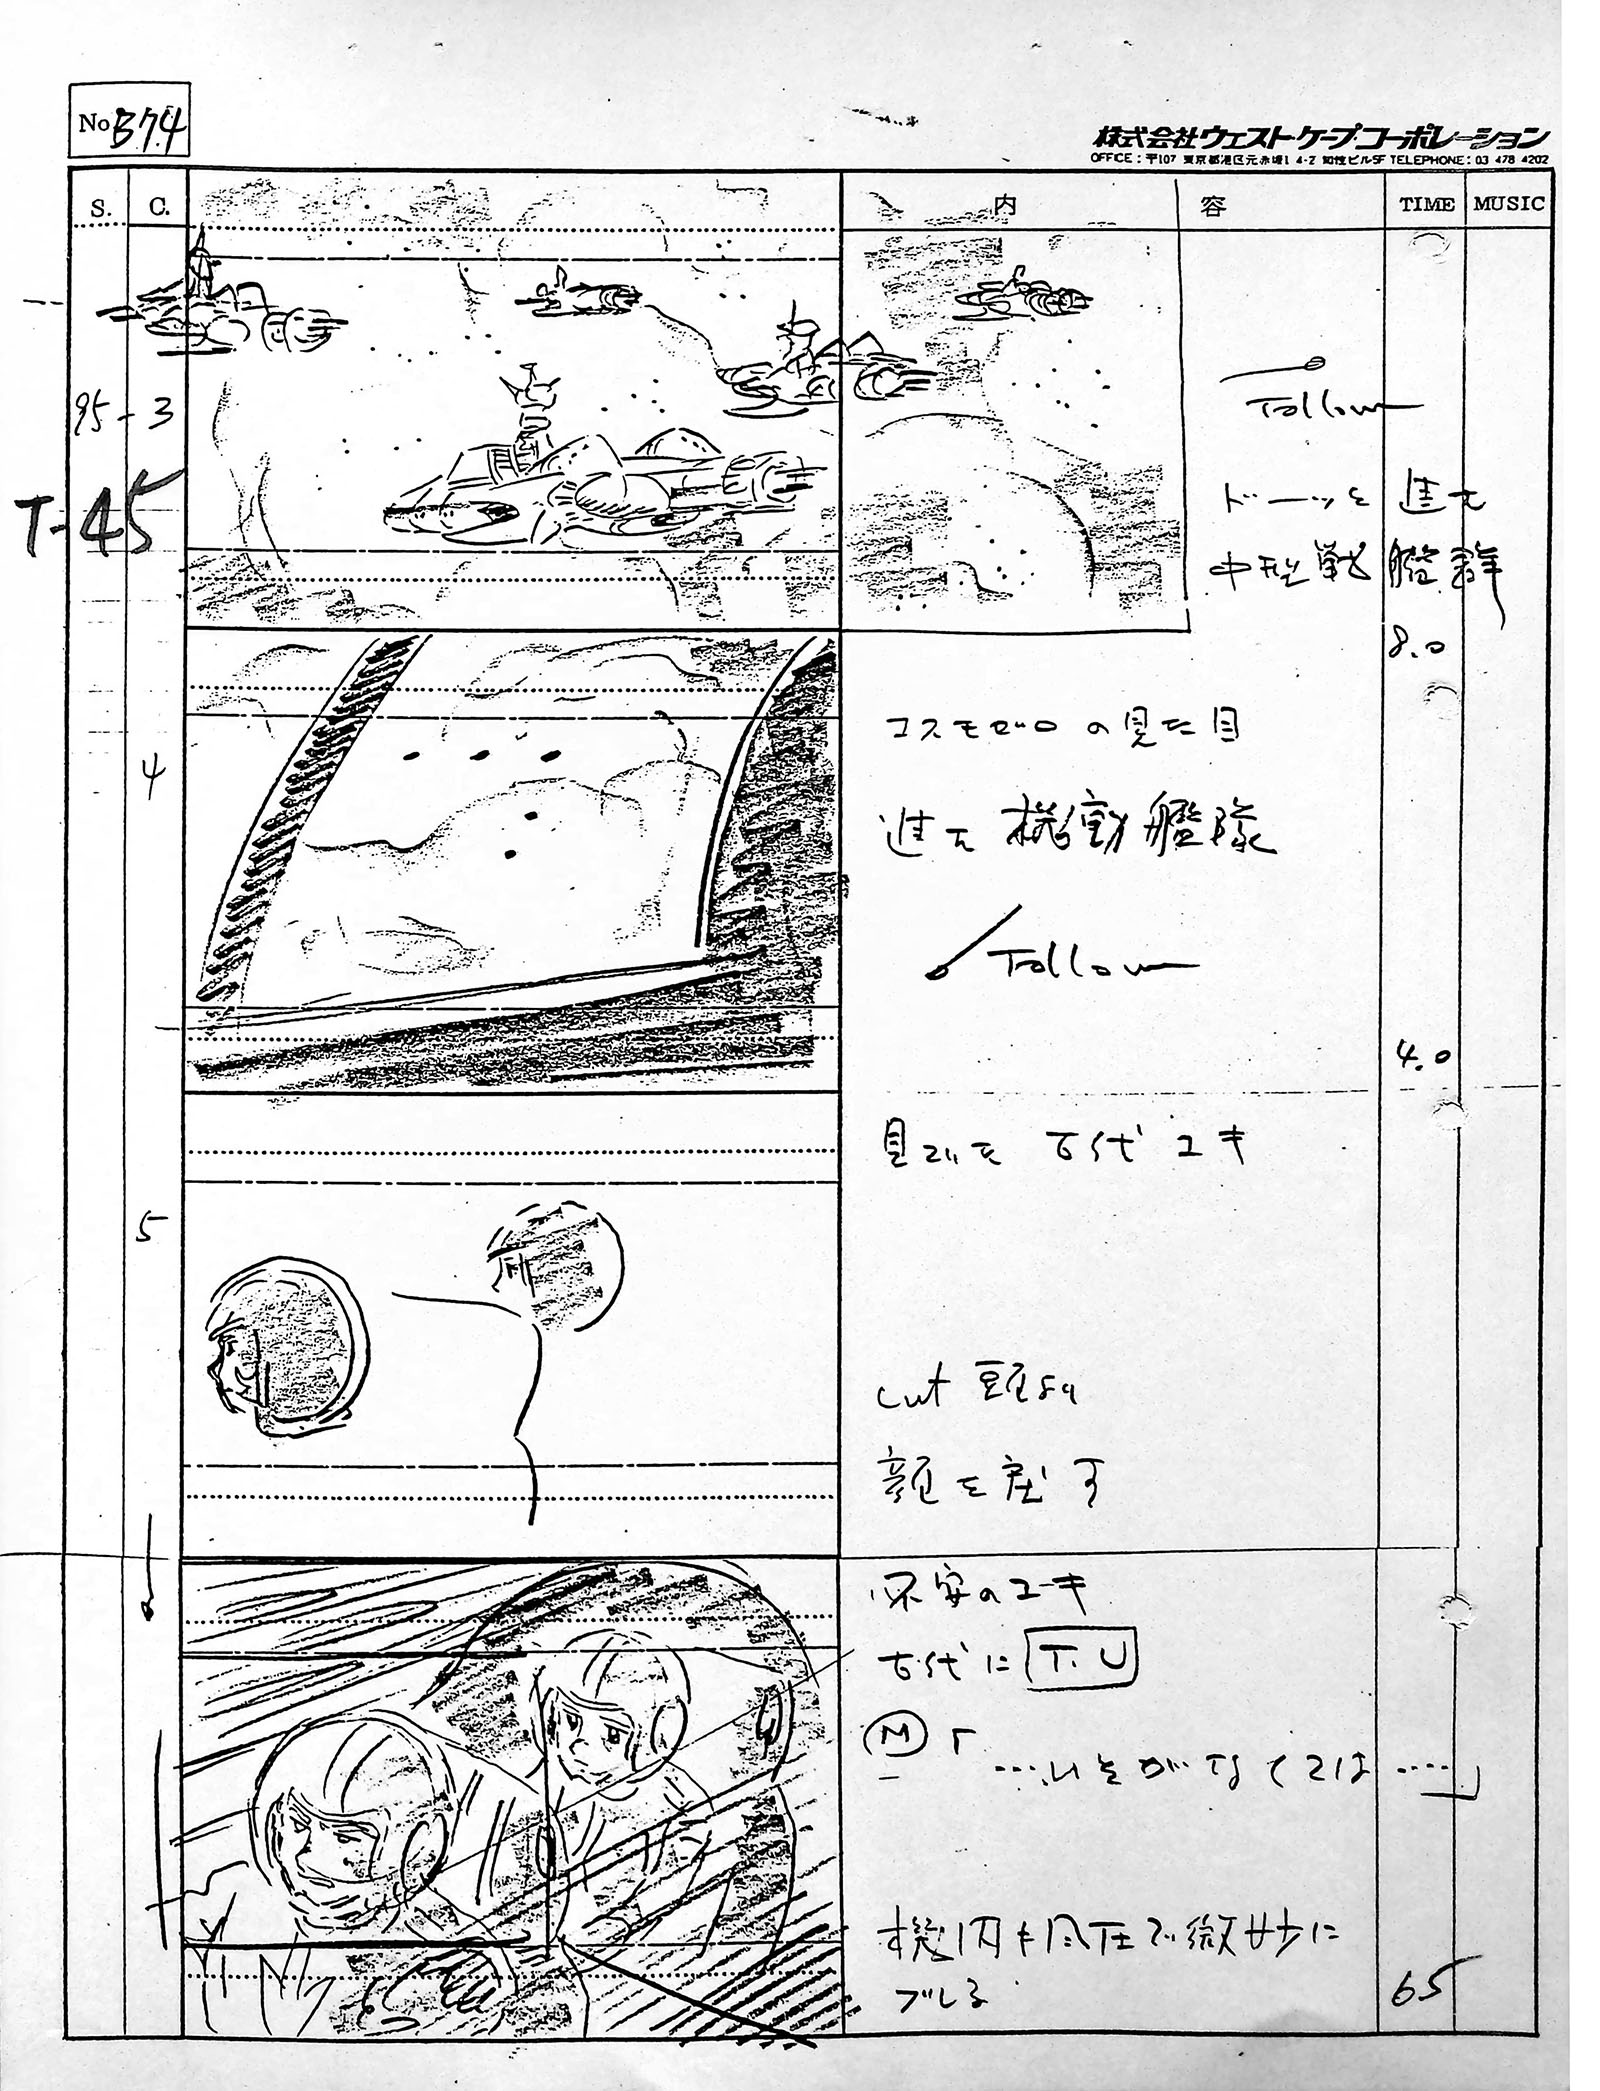 No B74
株式会社ウェスト・ケープ・コーポレーション
OFFICE : 〒107 東京都港区元赤坂1 4-2 知性ビル5F TELEPHONE : 03 478 4202
S. C. 内 容 TIME MUSIC
95-3
T-45
Follow
ドーッと進む
中型戦艦群
8.0
4
コスモゼロの見た目
進む機動艦隊
Follow
4.0
5
見ている 古代 ユキ
cut 頭より
顔を戻す
不安のユーキ
古代に T.U
M「
‥‥いそがなくては‥‥」
機内も風圧で微妙に
ブレる
65